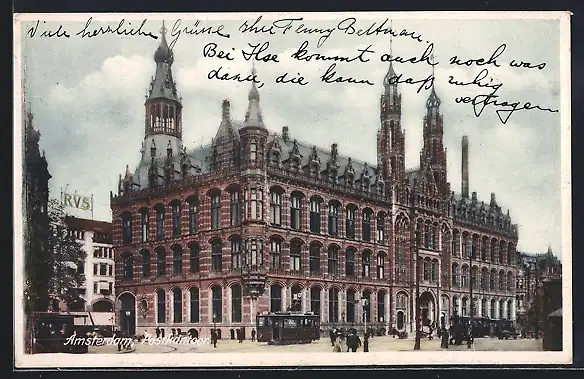 Viele herzliche Grüsse Ihr Fenny Beltman.
Bei Ilse kommt auch noch was
dazu, die kann das ruhig
vertragen
RVS
Amsterdam, Postkantoor.